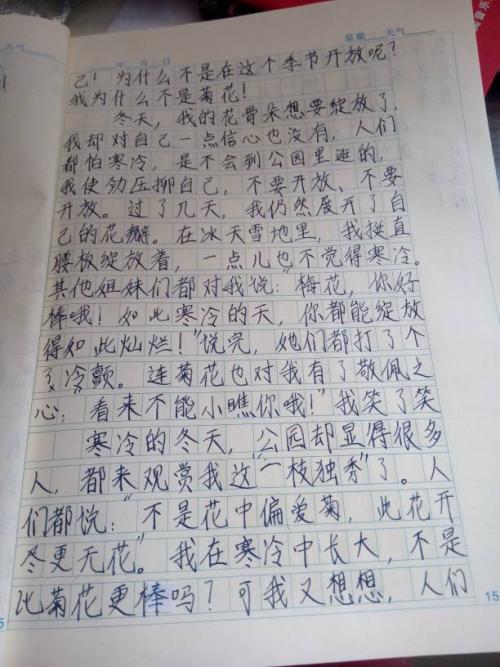 天气
年 月 日 星期 天气
己！为什么不是在这个季节开放呢？
我为什么不是菊花！
冬天，我的花骨朵想要绽放了，
我却对自己一点信心也没有，人们
都怕寒冷，是不会到公园里逛的，
我使劲压抑自己，不要开放、不要
开放。过了几天，我仍然展开了自
己的花瓣。在冰天雪地里，我挺直
腰板绽放着，一点儿也不觉得寒冷。
其他姐妹们都对我说："梅花，你好
棒哦！如此寒冷的天，你都能绽放
得如此灿烂！"说完，她们都打了个
冷颤。连菊花也对我有了敬佩之
心："看来不能小瞧你哦！"我笑了笑
寒冷的冬天，公园却显得很多
人，都来观赏我这"一枝独秀"了。人
们都说："不是花中偏爱菊，此花开
冬更无花"。我在寒冷中长大，不是
比菊花更棒吗？可我又想想，人们
15